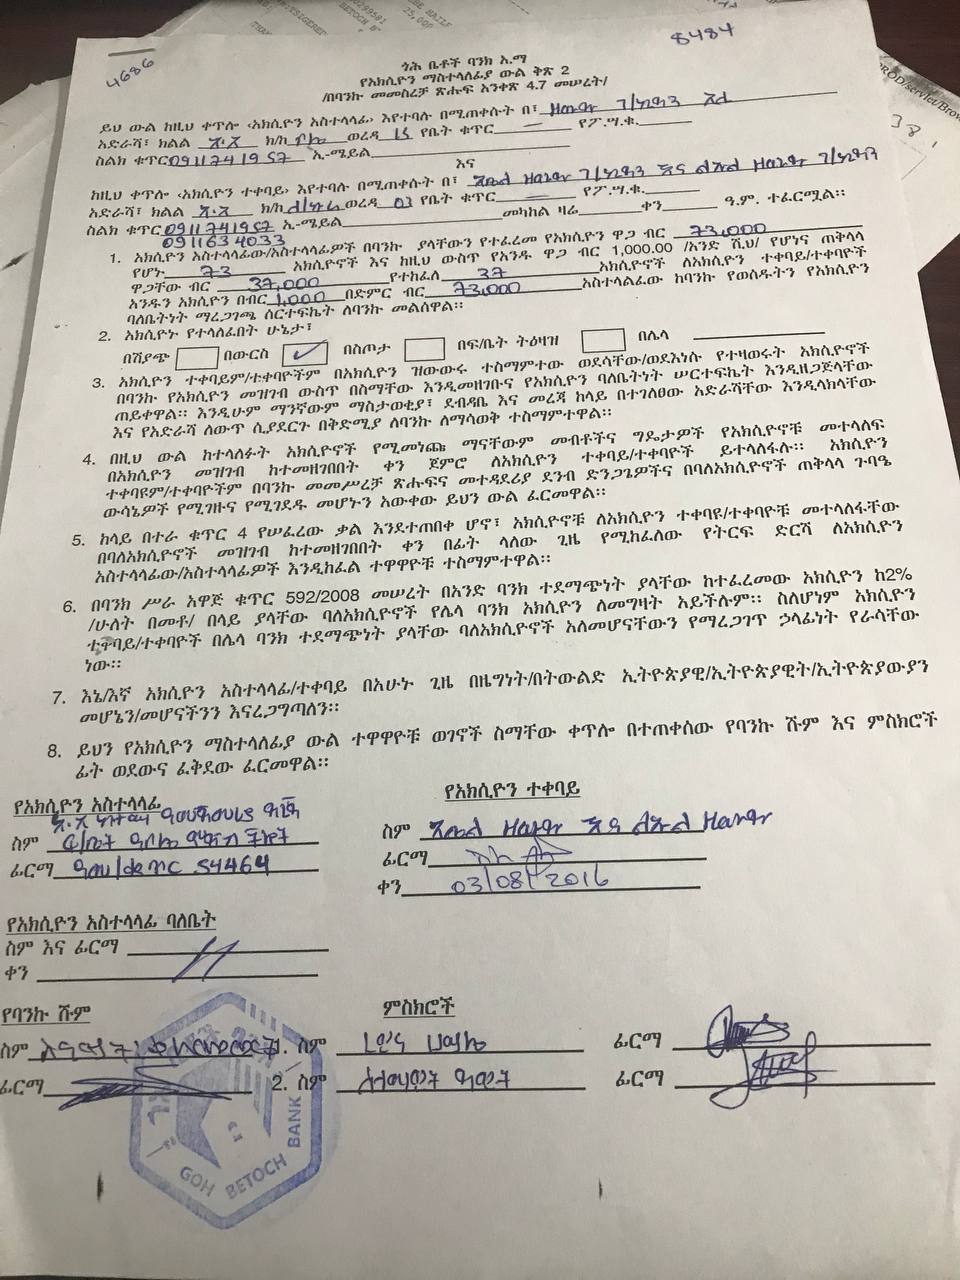 4686
8484
ጎሕ ቤቶች ባንክ አ.ማ
የአክሲዮን ማስተላለፊያ ውል ቅጽ 2
/በባንኩ መመስረቻ ጽሑፍ አንቀጽ 4.7 መሠረት/
ይህ ውል ከዚህ ቀጥሎ ‹አክሲዮን አስተላላፊ› እየተባሉ በሚጠቀሱት በ፣
አድራሻ፣ ክልል አ.አ ክ/ከ ቦሌ ወረዳ 15 የቤት ቁጥር — የፖ.ሣ.ቁ.
ስልክ ቁጥር 0911741957 ኢ-ሜይል
እና
ከዚህ ቀጥሎ ‹አክሲዮን ተቀባይ› እየተባሉ በሚጠቀሱት በ፣
አድራሻ፣ ክልል አ.አ ክ/ከ ወረዳ 03 የቤት ቁጥር የፖ.ሣ.ቁ.
ስልክ ቁጥር 0911741957 ኢ-ሜይል መካከል ዛሬ ቀን ዓ.ም. ተፈርሟል፡፡
0911634033
1. አክሲዮን አስተላላፊው/አስተላላፊዎች በባንኩ ያላቸውን የተፈረመ የአክሲዮን ዋጋ ብር 73,000
የሆኑ 73 አክሲዮኖች እና ከዚህ ውስጥ የአንዱ ዋጋ ብር 1,000.00 /አንድ ሺህ/ የሆነና ጠቅላላ
ዋጋቸው ብር 37,000 የተከፈለ 37 አክሲዮኖች ለአክሲዮን ተቀባይ/ተቀባዮች
አንዱን አክሲዮን በብር 1,000 በድምር ብር 73,000 አስተላልፈው ከባንኩ የወሰዱትን የአክሲዮን
ባለቤትነት ማረጋገጫ ሰርተፍኬት ለባንኩ መልሰዋል፡፡
2. አክሲዮኑ የተላለፈበት ሁኔታ፣
በሽያጭ በውርስ ✓ በስጦታ በፍ/ቤት ትዕዛዝ በሌላ
3. አክሲዮን ተቀባይም/ተቀባዮችም በአክሲዮን ዝውውሩ ተስማምተው ወደሳቸው/ወደእነሱ የተዛወሩት አክሲዮኖች
በባንኩ የአክሲዮን መዝገብ ውስጥ በስማቸው እንዲመዘገቡና የአክሲዮን ባለቤትነት ሠርተፍኬት እንዲዘጋጅላቸው
ጠይቀዋል፡፡ እንዲሁም ማንኛውም ማስታወቂያ፣ ደብዳቤ እና መረጃ ከላይ በተገለፀው አድራሻቸው እንዲላክላቸው
እና የአድራሻ ለውጥ ሲያደርጉ በቅድሚያ ለባንኩ ለማሳወቅ ተስማምተዋል፡፡
4. በዚህ ውል ከተላለፉት አክሲዮኖች የሚመነጩ ማናቸውም መብቶችና ግዴታዎች የአክሲዮኖቹ መተላለፍ
በአክሲዮን መዝገብ ከተመዘገበበት ቀን ጀምሮ ለአክሲዮን ተቀባይ/ተቀባዮች ይተላለፋሉ፡፡ አክሲዮን
ተቀባዩም/ተቀባዮችም በባንኩ መመሥረቻ ጽሑፍና መተዳደሪያ ደንብ ድንጋጌዎችና በባለአክሲዮኖች ጠቅላላ ጉባዔ
ውሳኔዎች የሚገዙና የሚገደዱ መሆኑን አውቀው ይህን ውል ፈርመዋል፡፡
5. ከላይ በተራ ቁጥር 4 የሠፈረው ቃል እንደተጠበቀ ሆኖ፣ አክሲዮኖቹ ለአክሲዮን ተቀባዩ/ተቀባዮቹ መተላለፋቸው
በባለአክሲዮኖች መዝገብ ከተመዘገበበት ቀን በፊት ላለው ጊዜ የሚከፈለው የትርፍ ድርሻ ለአክሲዮን
አስተላላፊው/አስተላላፊዎች እንዲከፈል ተዋዋዮቹ ተስማምተዋል፡፡
6. በባንክ ሥራ አዋጅ ቁጥር 592/2008 መሠረት በአንድ ባንክ ተደማጭነት ያላቸው ከተፈረመው አክሲዮን ከ2%
/ሁለት በመቶ/ በላይ ያላቸው ባለአክሲዮኖች የሌላ ባንክ አክሲዮን ለመግዛት አይችሉም፡፡ ስለሆነም አክሲዮን
ተቀባይ/ተቀባዮች በሌላ ባንክ ተደማጭነት ያላቸው ባለአክሲዮኖች አለመሆናቸውን የማረጋገጥ ኃላፊነት የራሳቸው
ነው፡፡
7. እኔ/እኛ አክሲዮን አስተላላፊ/ተቀባይ በአሁኑ ጊዜ በዜግነት/በትውልድ ኢትዮጵያዊ/ኢትዮጵያዊት/ኢትዮጵያውያን
መሆኔን/መሆናችንን እናረጋግጣለን፡፡
8. ይህን የአክሲዮን ማስተላለፊያ ውል ተዋዋዮቹ ወገኖች ስማቸው ቀጥሎ በተጠቀሰው የባንኩ ሹም እና ምስክሮች
ፊት ወደውና ፈቅደው ፈርመዋል፡፡
የአክሲዮን አስተላላፊ
የአክሲዮን ተቀባይ
ስም
ፊርማ 54464
ስም
ፊርማ
ቀን 03/08/2016
የአክሲዮን አስተላላፊ ባለቤት
ስም እና ፊርማ
ቀን
የባንኩ ሹም
ምስክሮች
ስም
1. ስም
ፊርማ
ፊርማ
2. ስም
ፊርማ
GOH BETOCH BANK